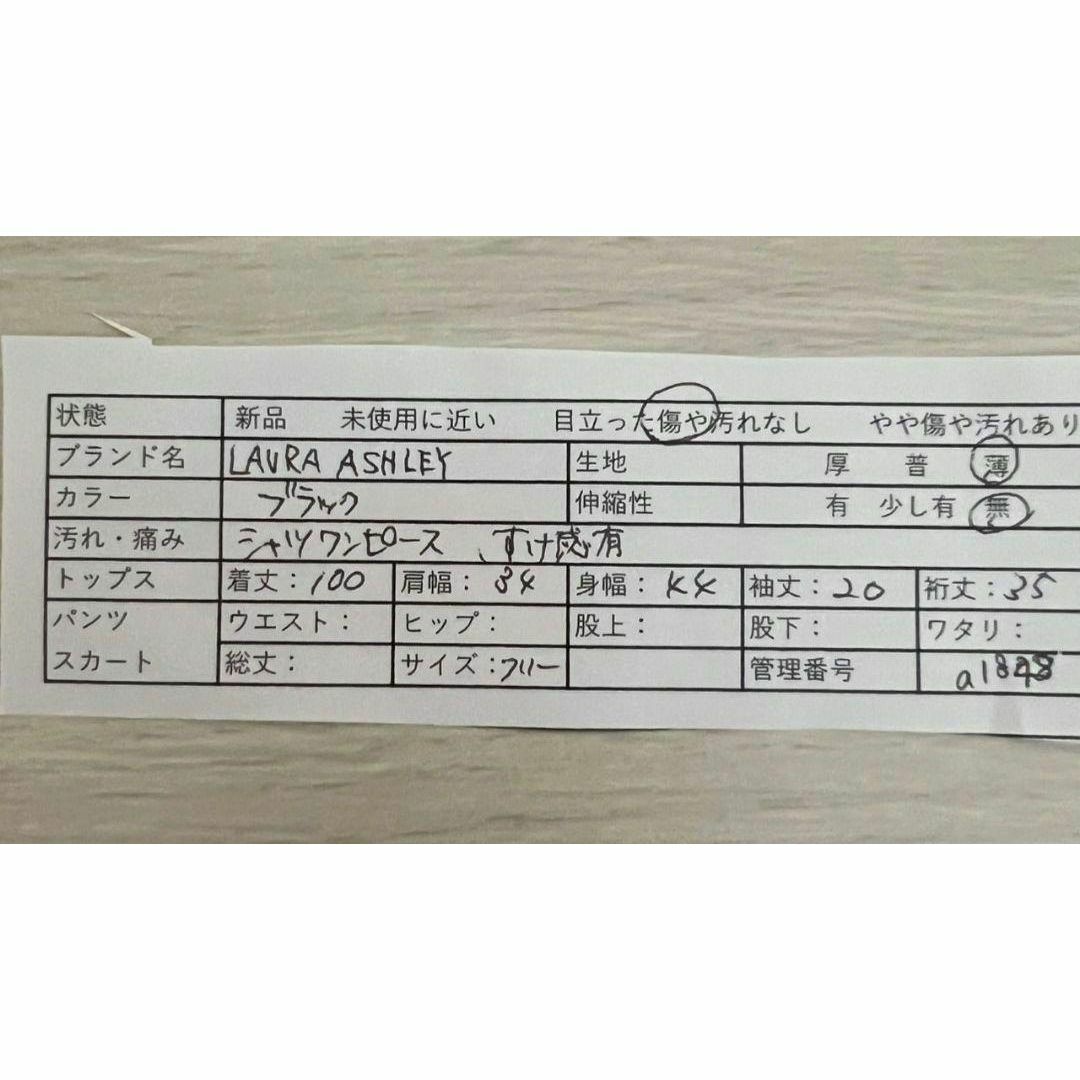 状態 新品 未使用に近い 目立った傷や汚れなし やや傷や汚れあり
ブランド名 LAURA ASHLEY 生地 厚 普 薄
カラー ブラック 伸縮性 有 少し有 無
汚れ・痛み シャツワンピース、すけ感有
トップス 着丈：100 肩幅：34 身幅：44 袖丈：20 裄丈：35
パンツ ウエスト： ヒップ： 股上： 股下： ワタリ：
スカート 総丈： サイズ：フリー 管理番号